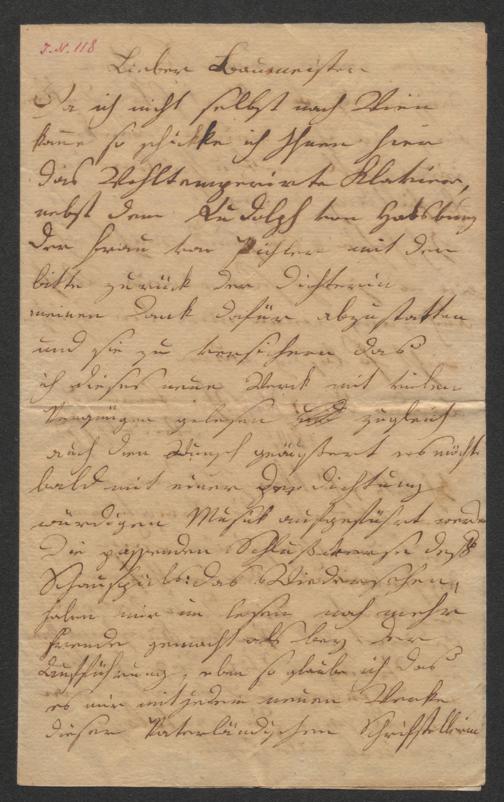 J.N. 118
Lieber Baumeister
Da ich nicht selbst nach Wien
kann so schicke ich Ihnen hier
das Wohltemperirte Klavier,
nebst dem Rudolph von Habsburg
der Frau von Pichler mit der
bitte zurück der Dichterin
meinen Dank dafür abzustatten
und sie zu versichern das
ich dieses neue Werk mit vielen
Vergnügen gelesen und zugleich
auch den Wunsch geäußert es möchte
bald mit einer der Dichtung
würdigen Musik aufgeführt werden
Die passenden Schlußverse des
Schauspiels: das Wiedersehen,
haben mir im lesen noch mehr
Freude gemacht als bey der
Aufführung, eben so glaube ich das
es mir mit jedem neuen Werke
dieser Vaterländischen Schriftstellerin